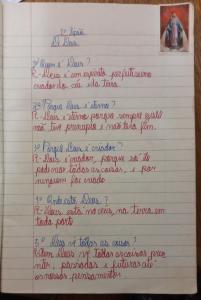 1ª lição
De Deus
1ª Quem é Deus?
R- Deus é um espirito perfeitissimo
criador do céu e da terra
2ª Porque Deus é eterno?
R- Deus é eterno porque sempre existi
não tive principio e não terá fim.
3ª Porque Deus é criador?
R- Deus é criador, porque só ele
pode criar todas as coisas, e por
ninguem foi criado
4ª Onde está Deus?
R- Deus está no céus, na terra, em
toda parte
5ª Deus vê todas as coisas?
Sim Deus vê todas as coisas prese
ntes, passadas e futuras até
os nossos pensamentos